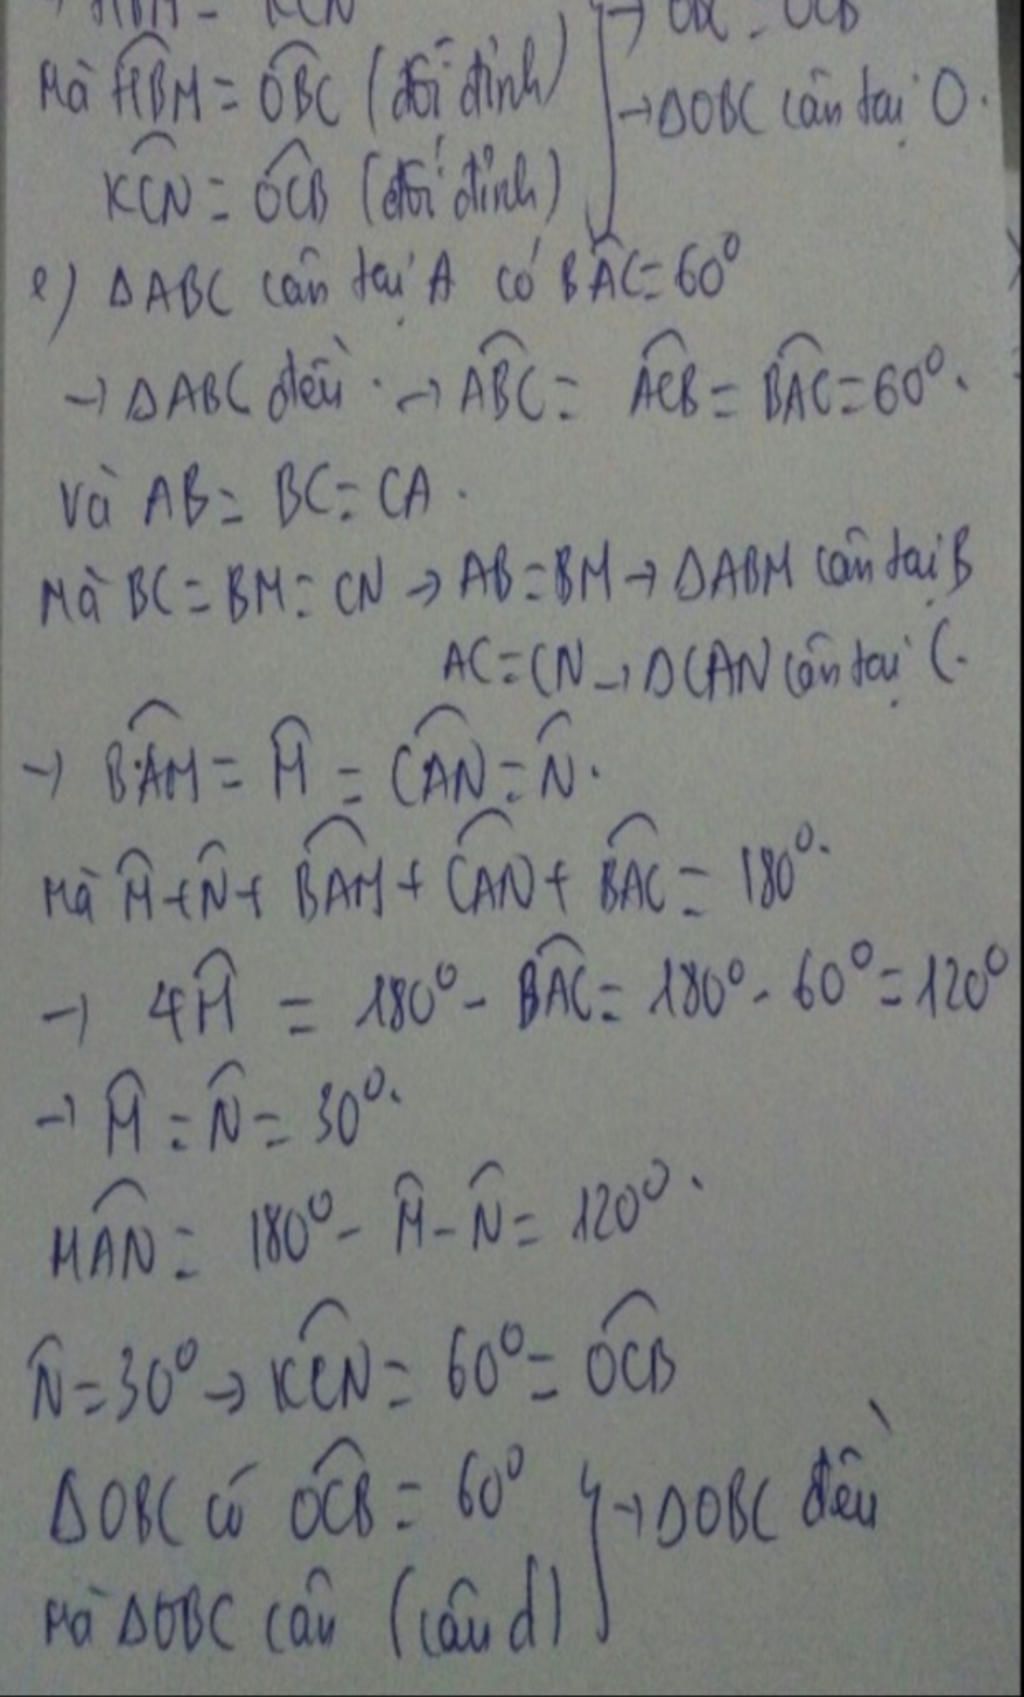 HBM = KCN
→ OBC = OCB
Mà HBM = OBC (đối đỉnh)
→ ΔOBC cân tại O.
KCN = OCB (đối đỉnh)
e) ΔABC cân tại A có BAC = 60⁰
→ ΔABC đều. → ABC = ACB = BAC = 60⁰.
và AB = BC = CA.
Mà BC = BM = CN → AB = BM → ΔABM cân tại B
AC = CN → ΔCAN cân tại C.
→ BAM = M = CAN = N.
Mà M + N + BAM + CAN + BAC = 180⁰.
→ 4M = 180⁰ - BAC = 180⁰ - 60⁰ = 120⁰
→ M = N = 30⁰.
MAN = 180⁰ - M - N = 120⁰.
N = 30⁰ → KCN = 60⁰ = OCB
ΔOBC có OCB = 60⁰
→ ΔOBC đều
Mà ΔOBC cân (câu d)